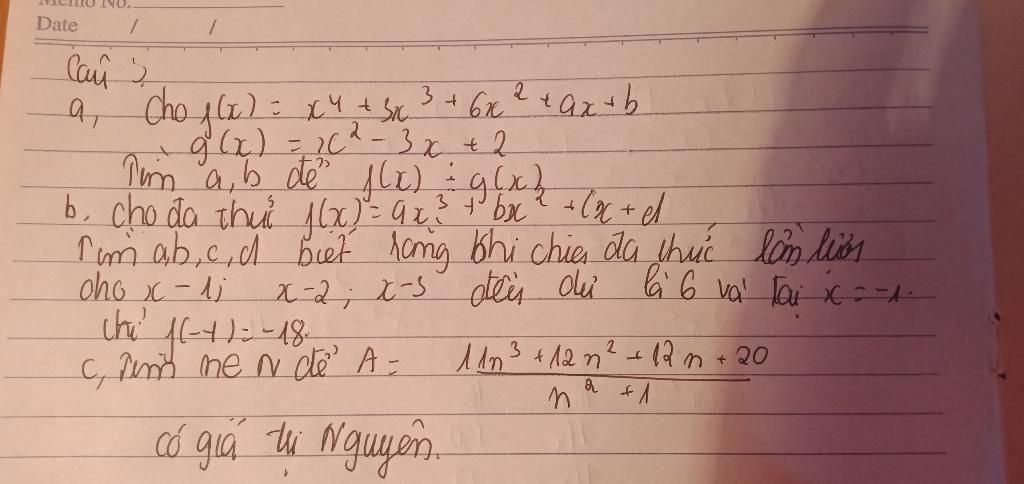 Memo No.
Date / /
Câu 3,
a, Cho f(x) = x⁴ + 3x³ + 6x² + ax + b
g(x) = x² - 3x + 2
Tìm a, b để f(x) ⋮ g(x)
b. cho đa thức f(x) = ax³ + bx² + cx + d
Tìm a,b,c,d biết rằng khi chia đa thức lần lượt
cho x - 1; x - 2; x - 3 đều dư là 6 và tại x = -1.
thì f(-1) = -18.
c, Tìm n ∈ N để A = 11n³ + 12n² + 12n + 20
n² + 1
có giá trị Nguyên.